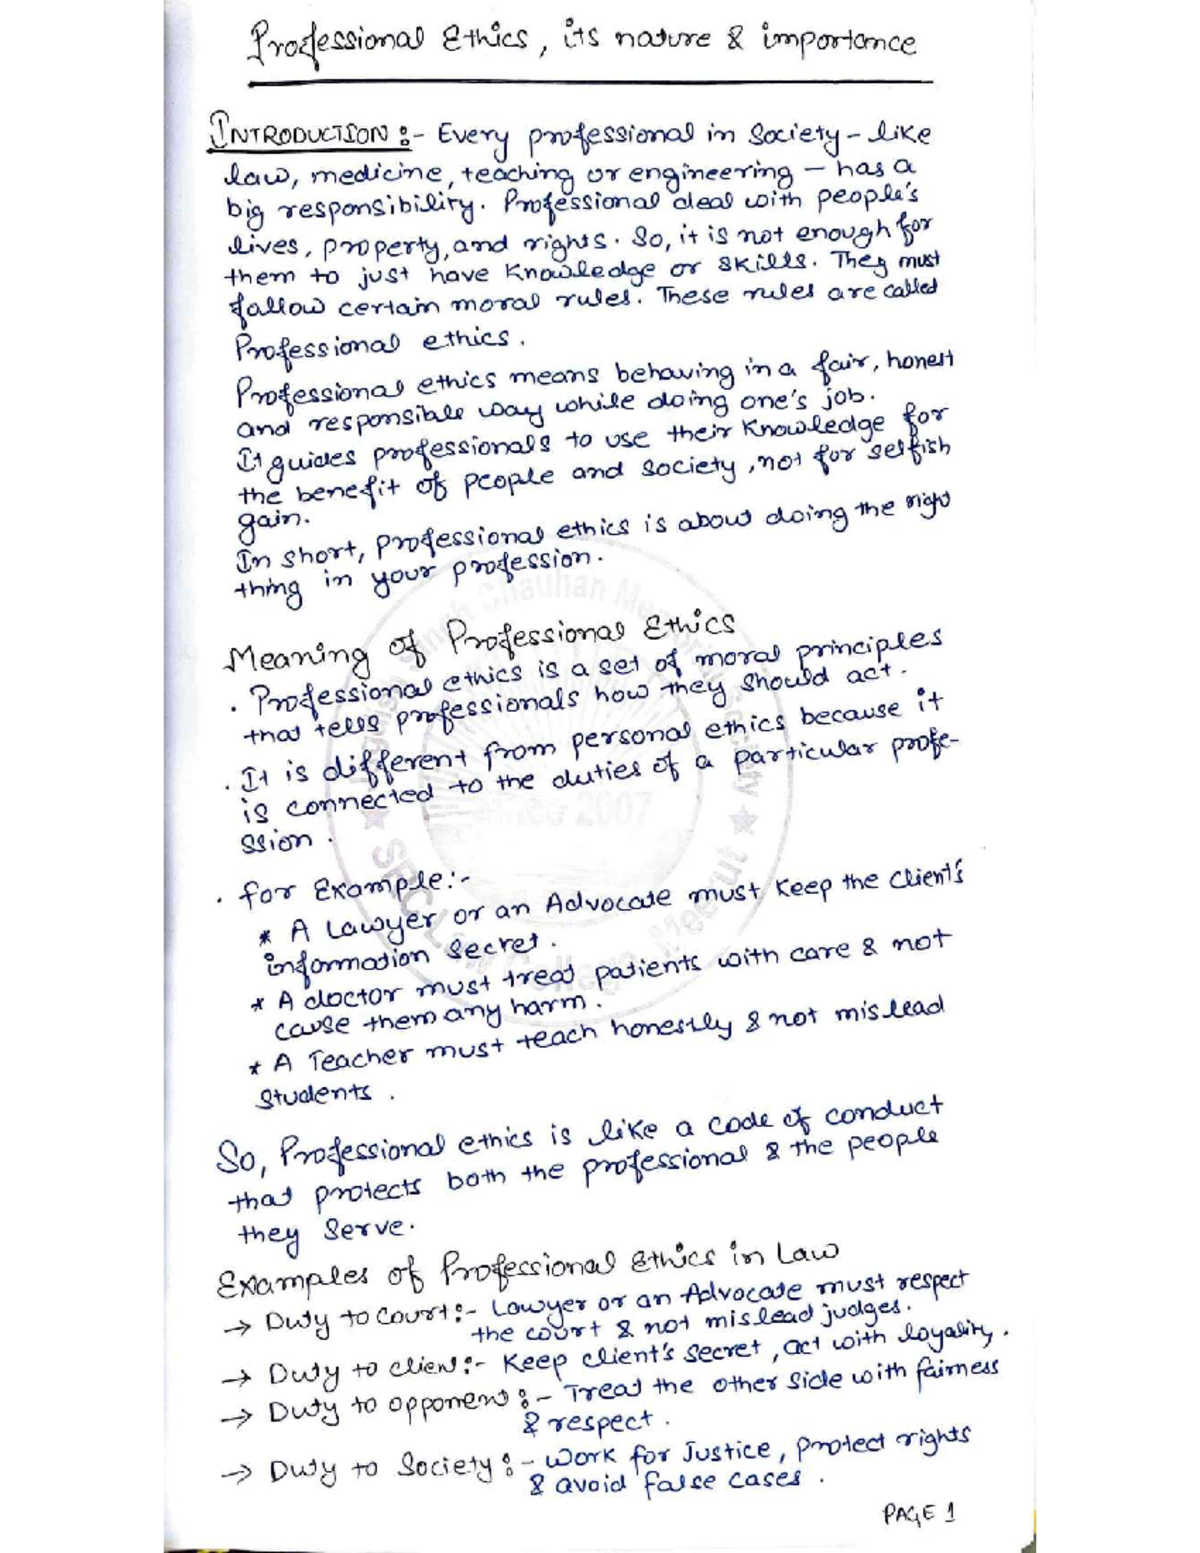 Professional Ethics, its nature & importance
INTRODUCTION :- Every professional in Society - like
law, medicine, teaching or engineering - has a
big responsibility. Professional deal with people's
lives, property, and rights. So, it is not enough for
them to just have knowledge or skills. They must
follow certain moral rules. These rules are called
Professional ethics.
Professional ethics means behaving in a fair, honest
and responsible way while doing one's job.
It guides professionals to use their knowledge for
the benefit of people and society, not for selfish
gain.
In short, professional ethics is about doing the right
thing in your profession.
Meaning of Professional Ethics
. Professional ethics is a set of moral principles
that tells professionals how they should act.
. It is different from personal ethics because it
is connected to the duties of a particular profe-
ssion.
. for Example:-
* A Lawyer or an Advocate must keep the client's
information secret.
* A doctor must treat patients with care & not
cause them any harm.
* A Teacher must teach honestly & not mislead
students.
So, Professional ethics is like a code of conduct
that protects both the professional & the people
they serve.
Examples of Professional Ethics in Law
→ Duty to Court:- Lawyer or an Advocate must respect
the court & not mislead judges.
→ Duty to client:- Keep client's secret, act with loyality.
→ Duty to opponent:- Treat the other side with fairness
& respect.
→ Duty to Society:- Work for Justice, protect rights
& avoid false cases.
PAGE 1
Singh Chauhan Memorial Society
Since 2007
SRC Law College Meerut